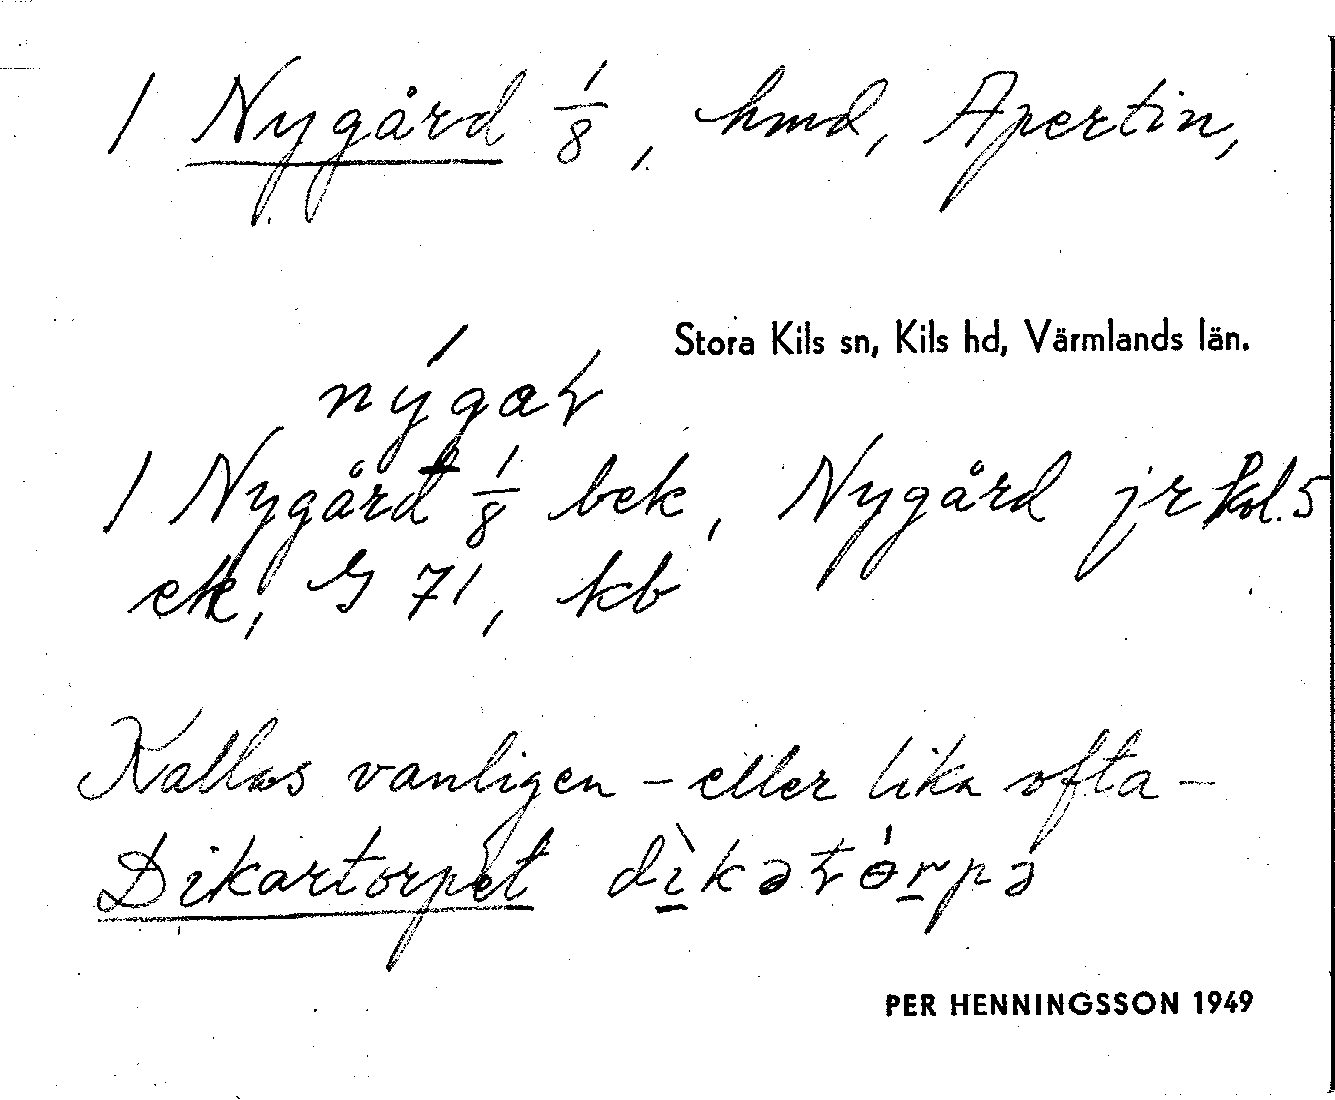 1 Nygård 1/8, hmd, Apertin,
Stora Kils sn, Kils hd, Värmlands län.
nýgaṙ
1 Nygård 1/8 bek, Nygård jr kol. 5
ek, G 71, kb
Kallas vanligen – eller lika ofta –
Dikartorpet dìkətórpə
PER HENNINGSSON 1949